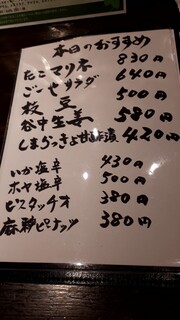 本日のおすすめ
たこマリネ 830円
ごーやサラダ 640円
枝豆 500円
谷中生姜 580円
しまらっきょ甘酢漬 420円
いか塩辛 430円
ホヤ塩辛 500円
ピスタッチオ 380円
麻辣ピーナッツ 380円